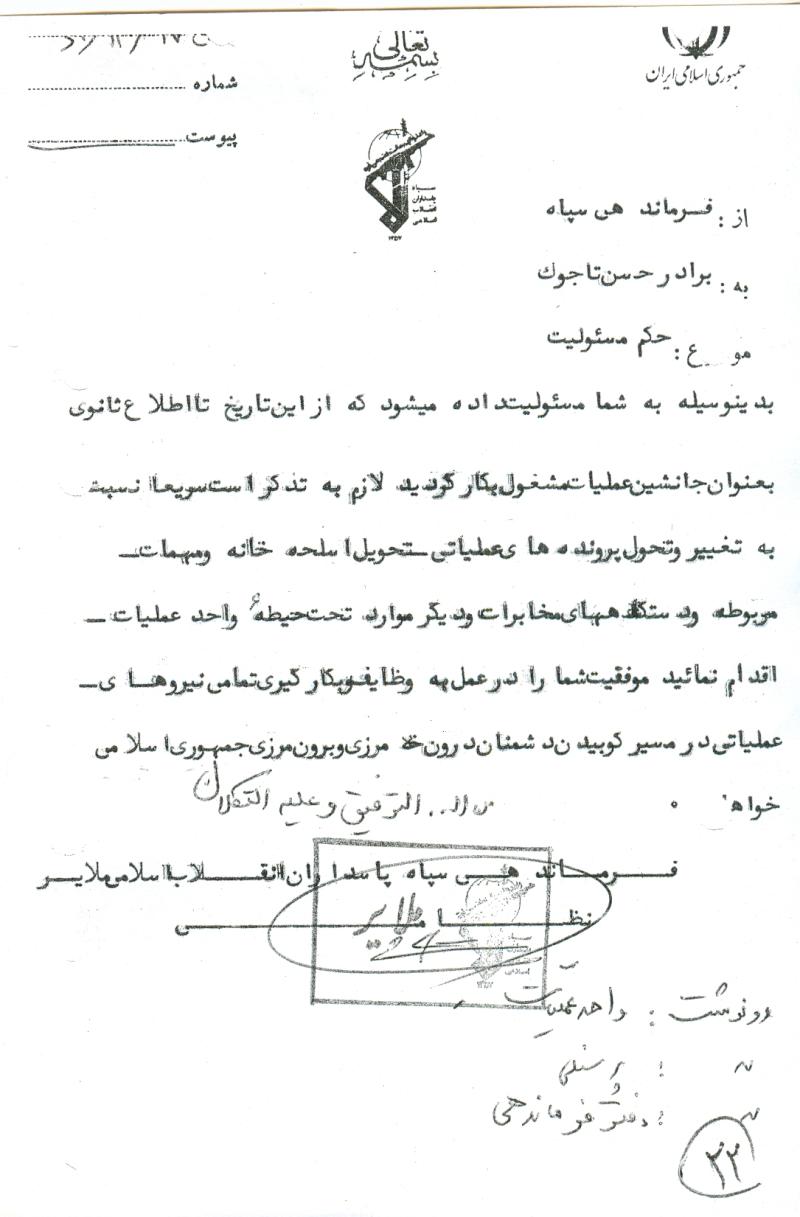 بسمه تعالی
جمهوری اسلامی ایران
شماره
پیوست
سپاه
پاسداران
انقلاب
اسلامی
۱۳۵۷
از : فرماند هی سپاه
به : براد ر حسن تاجوك
مو ع : حکم مسئولیت
بد ینوسیله به شما مسئولیتداد ه میشود که از این تاریخ تااطلا ع ثانوی
بعنوان جانشین عملیات مشغول بکار گردید لازم به تذکر است سریعا نسبت
به تغییر وتحول پرونده ها ی عملیاتی ــ تحویل اسلحه خانه ومهمات ــ
مربوطه ودستگاههای مخابرات ودیگر موارد تحت حیطه واحد عملیات ــ
اقدام نمائید موفقیت شما را در عمل به وظایف وبکار گیری تمامی نیروها ی ــ
عملیاتی در مسیر کوبیدن د شمنان درون مرزی وبرون مرزی جمهوری اسلامی
خواها
التوفیق و علیه التکلان
فرماند هی سپاه پاسداران انقلاب اسلامی ملایر
نظامی
ملایر
رونوشت : واحد عملیات
〃 : پرسنلی
〃 : دفتر فرماندهی
۲۲